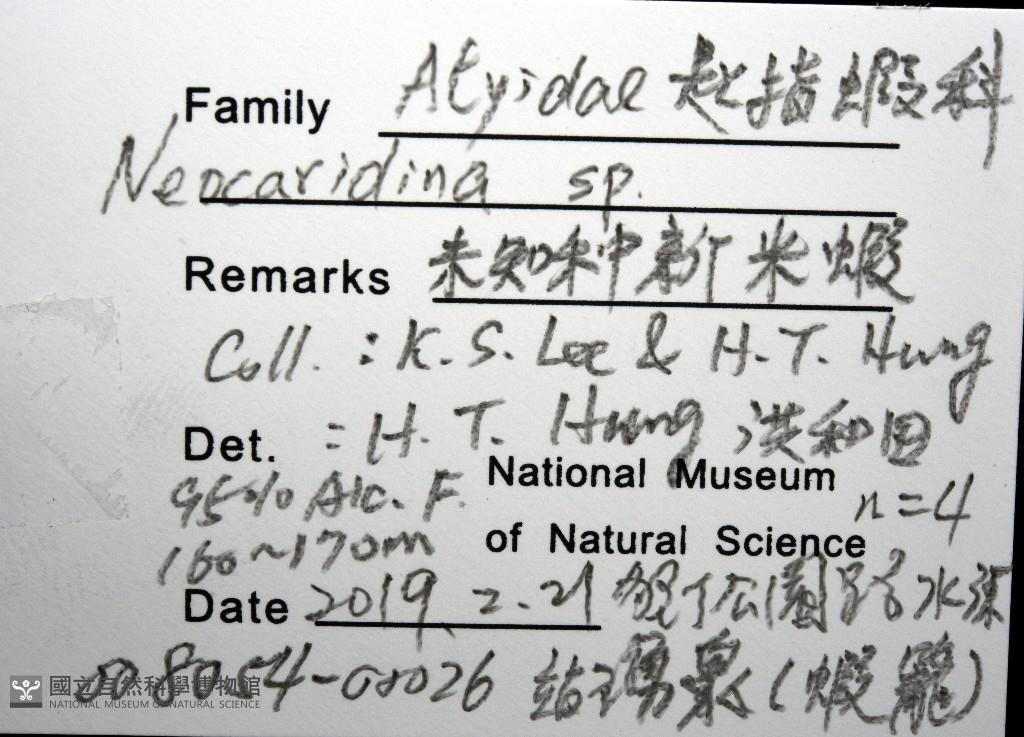 Family Atyidae 匙指蝦科
Neocaridina sp.
Remarks 未知種新米蝦
Coll. : K. S. Lee & H. T. Hung
Det. : H. T. Hung 洪和田
95% Alc. F. National Museum n=4
160~170m of Natural Science
Date 2019. 2. 21 公園路水源
-00026 (蝦籠)
國立自然科學博物館
NATIONAL MUSEUM OF NATURAL SCIENCE